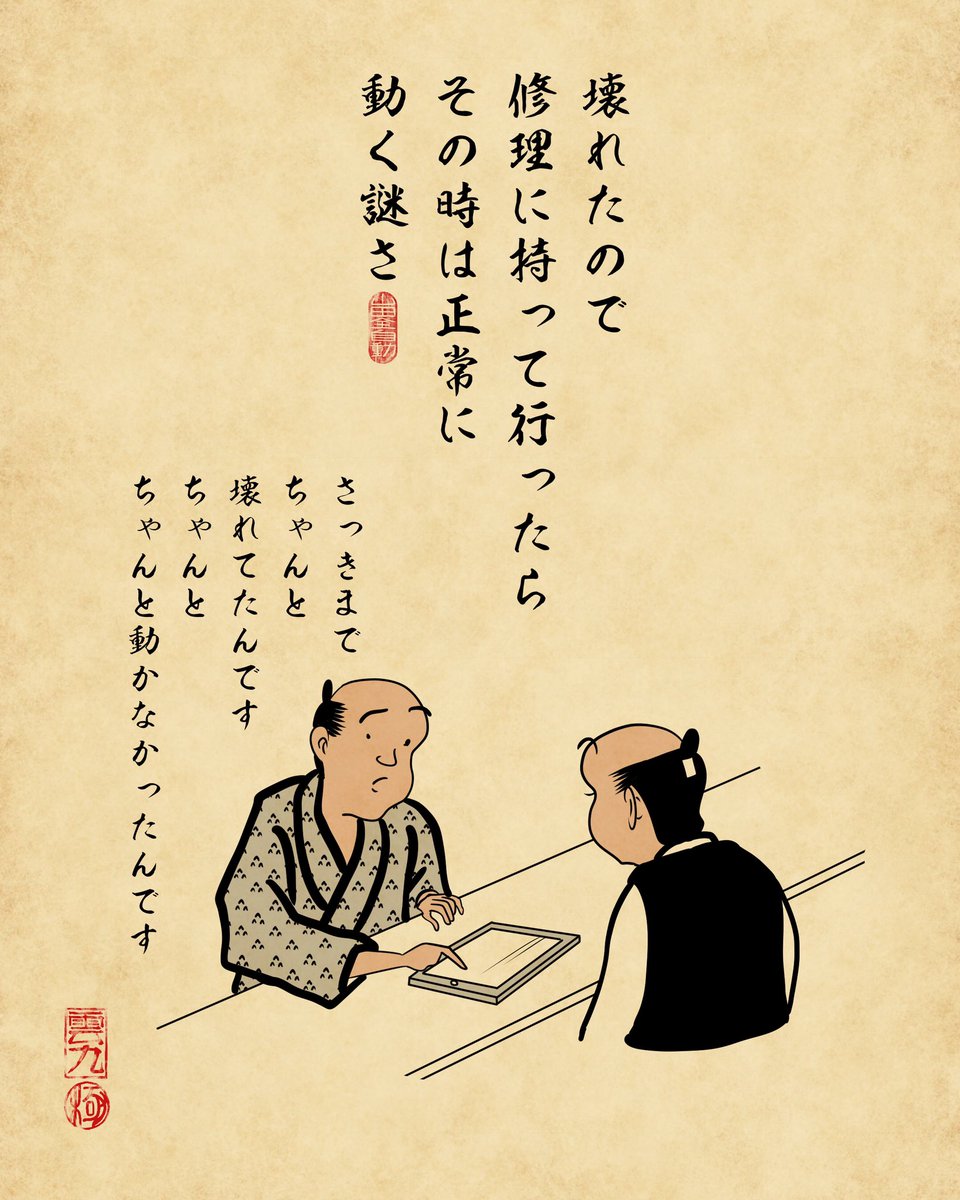 壊れたので
修理に持って行ったら
その時は正常に
動く謎さ
さっきまで
ちゃんと
壊れてたんです
ちゃんと
ちゃんと動かなかったんです